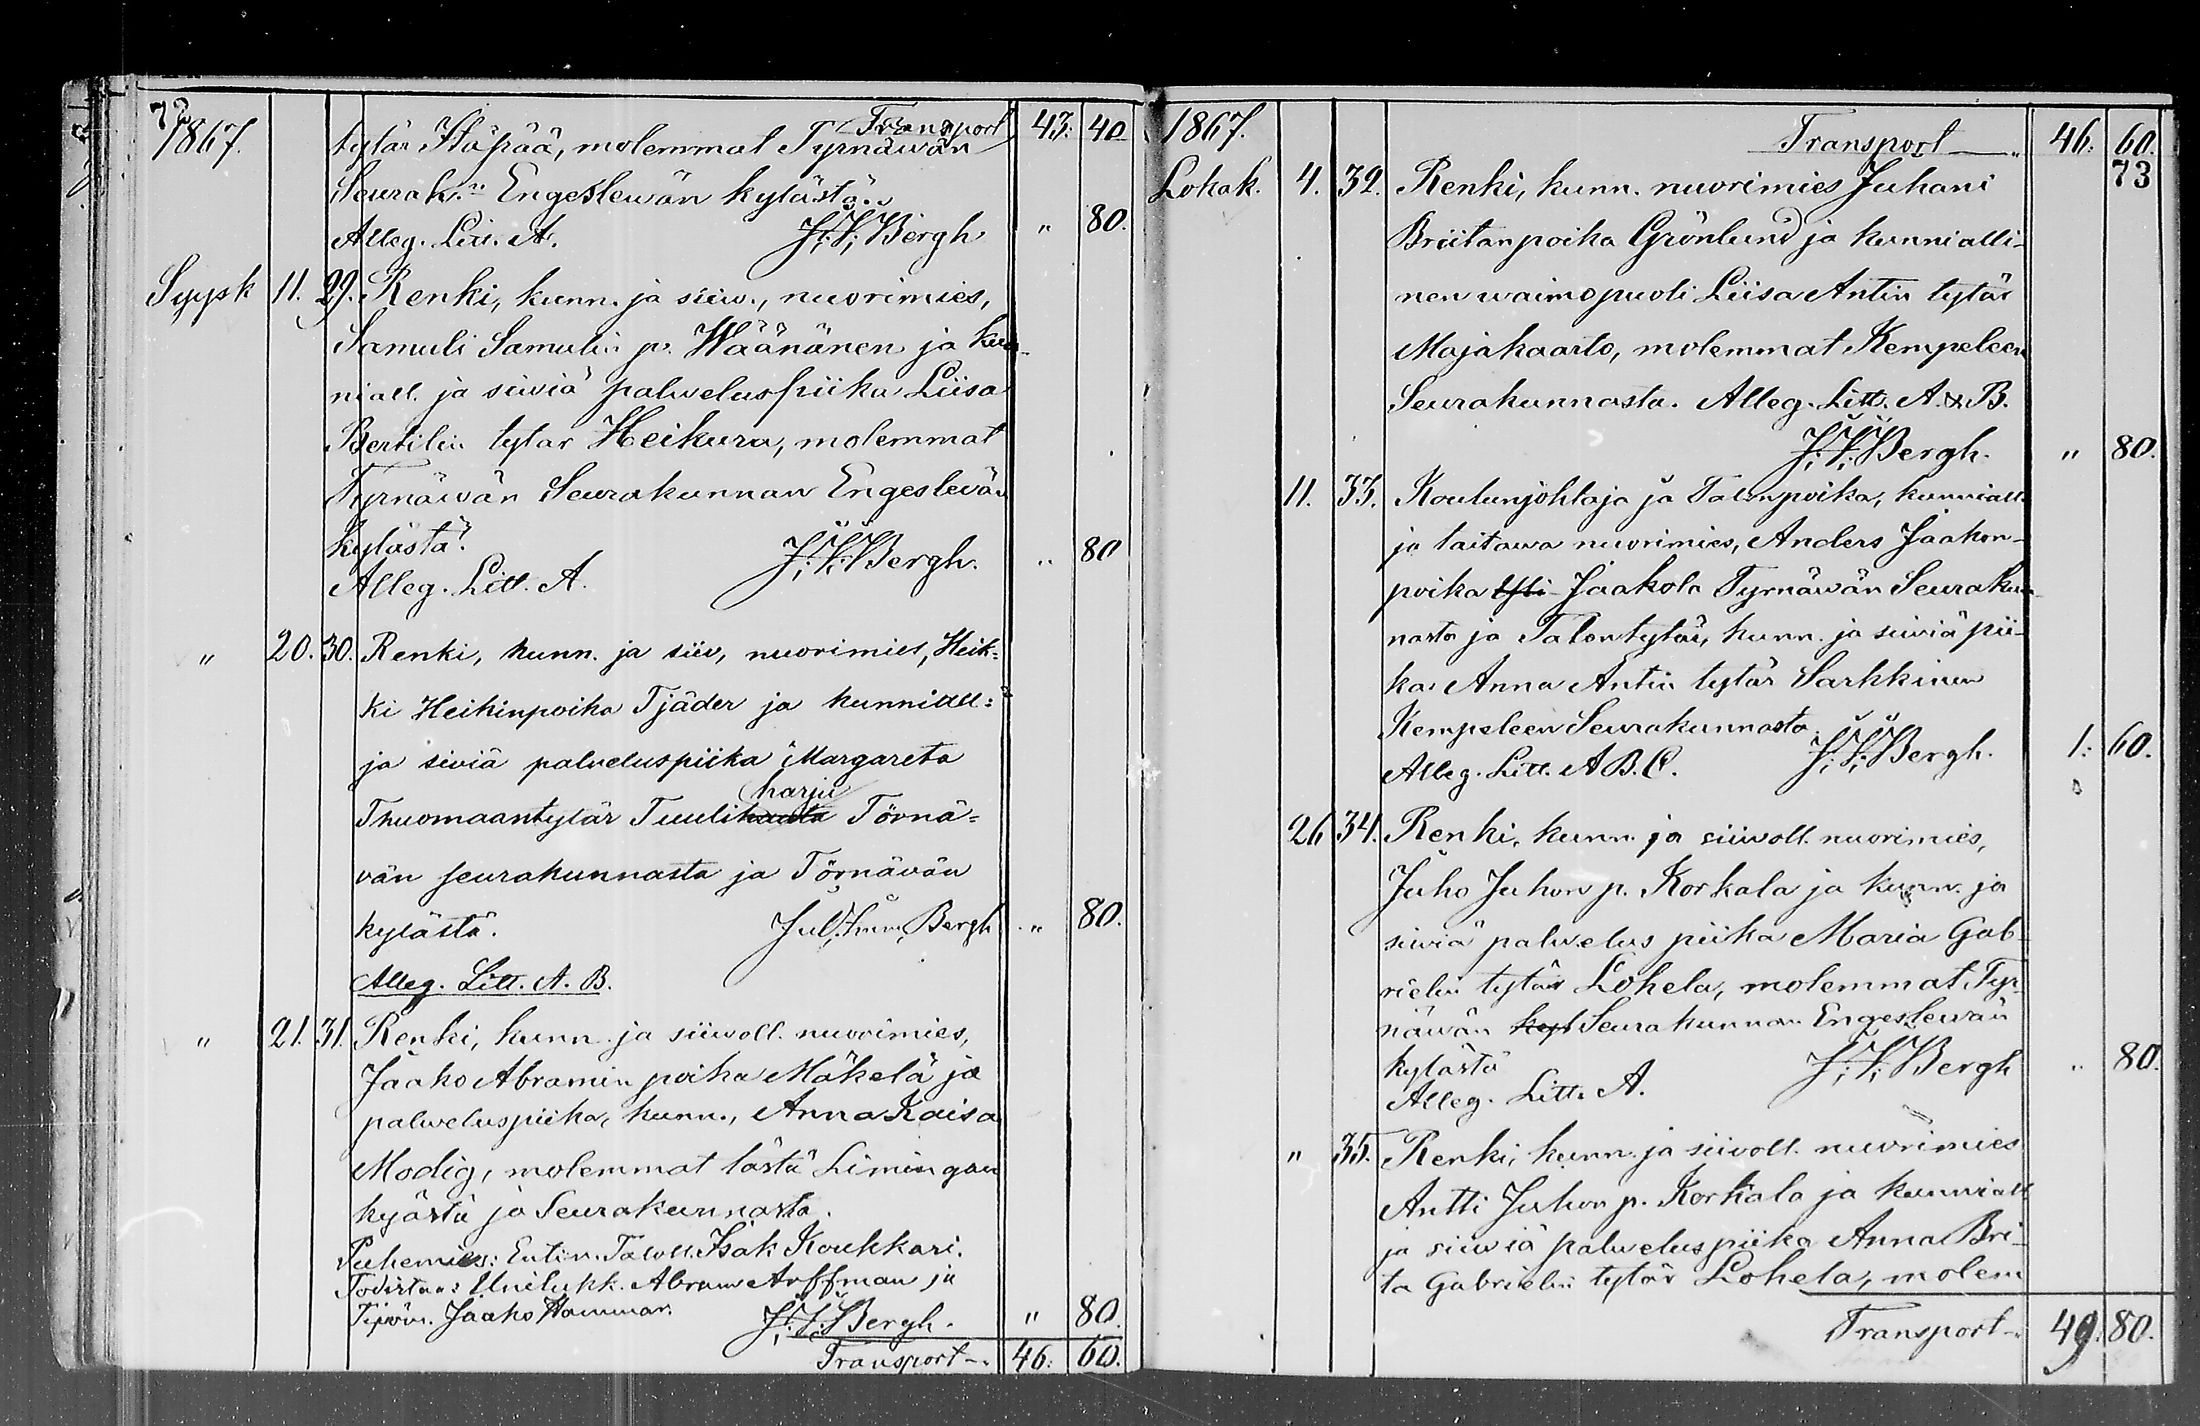 72
1867. Transport 43: 40
tytär Häpää, molemmat Tyrnäwän
Seurak:n Engeslewän kylästä.
Alleg. Litt. A. J. I. Bergh " 80.
Syysk 11. 29. Renki, kunn. ja siiw., nuorimies,
Samuli Samulin p. Wäänänen ja kun-
niall. ja siiviä palveluspiika Liisa
Bertilin tytar Heikura, molemmat
Tyrnäwän Seurakunnan Engeslevän
kylästä.
Alleg. Litt. A. J. I. Bergh. " 80
" 20. 30. Renki, kunn. ja siiv, nuorimies, Heik-
ki Heikinpoika Tjäder ja kunniall:
ja siviä palveluspiika Margareta
harju
Thuomaantytär Tuulihaasta Törnä-
vän seurakunnasta ja Törnävän
kylästä. Jul. Imm. Bergh " 80.
Alleg. Litt. A. B.
" 21. 31. Renki, kunn. ja siiwoll. nuorimies,
Jaako Abramin poika Mäkelä ja
palveluspiika, kunn., Anna Kaisa
Modig, molemmat tästä Limingan
kyästä ja Seurakunnasta.
Puhemies: Entin. Taloll. Isak Koukkari.
Todistaa: Unilukk. Abram Arffman ja
Jaako Hammar. J. I. Bergh. " 80.
Transport 46: 60.
1867. Transport " 46: 60.
73
Lokak. 4. 32. Renki, kunn. nuorimies Juhani
Briitanpoika Grönlund ja kunnialli-
nen waimopuoli Liisa Antin tytär
Majakaarto, molemmat Kempeleen
Seurakunnasta. Alleg. Litt. A. & B.
J. I. Bergh. " 80.
11. 33. Koulunjohtaja ja Talonpoika, kunniall.
ja taitawa nuorimies, Anders Jaakon-
poika Jaakola Tyrnäwän Seurakun-
nasta ja Talontytär, kunn. ja siiviä pii-
ka Anna Antin tytär Sarkkinen
Kempeleen Seurakunnasta.
Alleg. Litt. A B. C. J. I. Bergh. 1: 60.
26 34. Renki, kunn. ja siiwoll. nuorimies,
Juho Juhon p. Korkala ja kunn. ja
siwiä palwelus piika Maria Gab-
rielin tytär Lohela, molemmat Tyr-
näwän kyl Seurakunnan Engeslewän
kylästä J. I. Bergh " 80.
Alleg. Litt. A.
" 35. Renki, kunn. ja siivoll. nuorimies
Antti Juhon p. Korkala ja kunniall
ja siiwiä palweluspiika Anna Bri-
ta Gabrielin tytär Lohela, molem
Transport 49: 80.